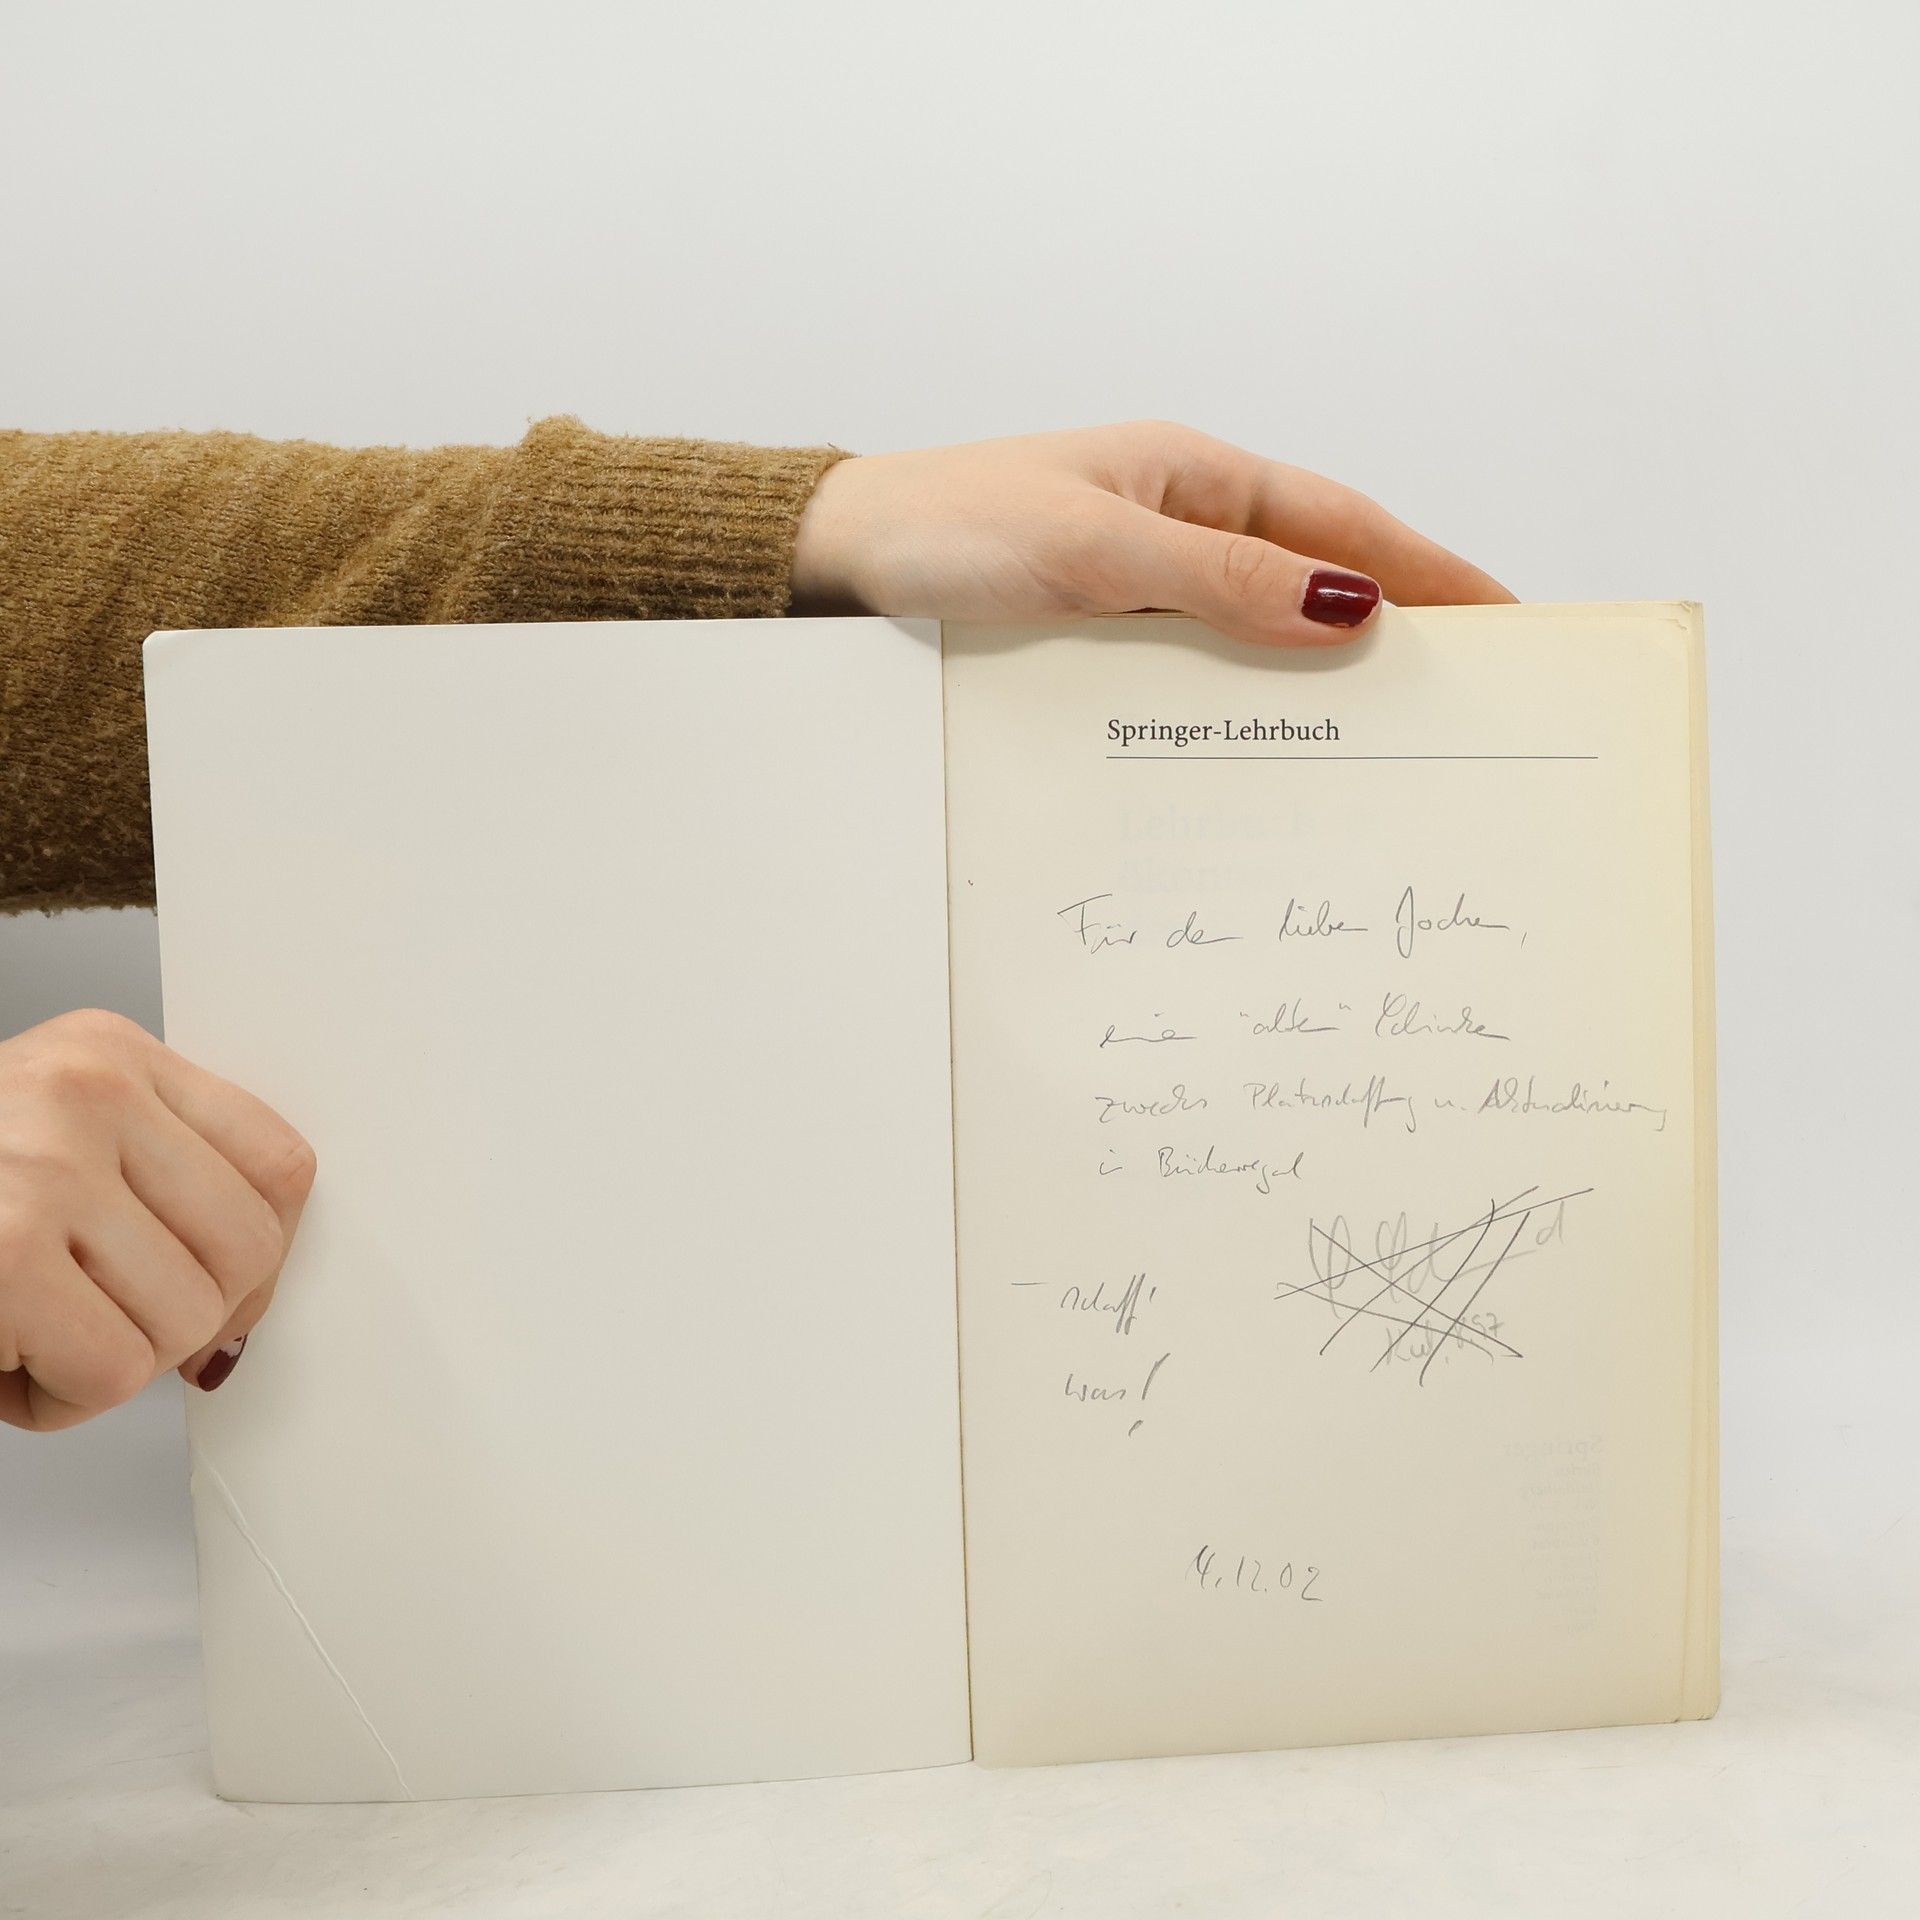 Springer-Lehrbuch
Für den lieben Jochen,
eine "alten" Schinken
zwecks Platzschaffung u. Aktualisierung
in Bücherregal
– schaff'
was!
4.12.02